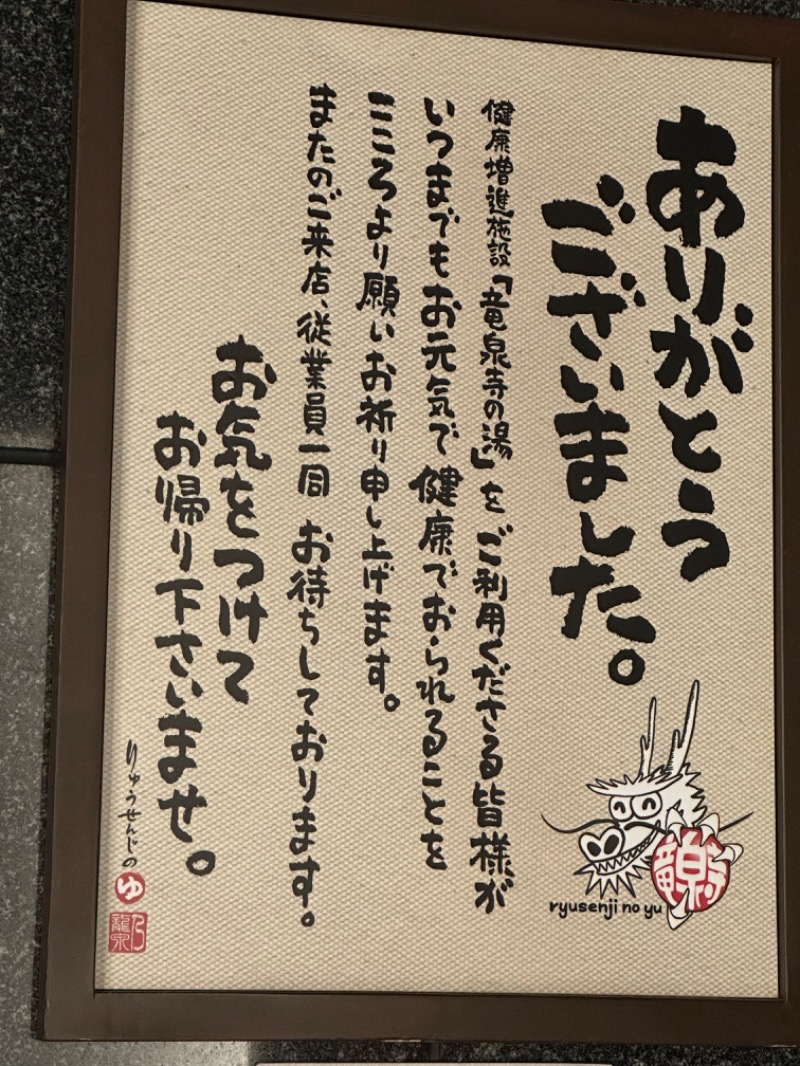 ありがとう
ございました。
健康増進施設「竜泉寺の湯」をご利用くださる皆様が
いつまでもお元気で健康でおられることを
こころより願いお祈り申し上げます。
またのご来店、従業員一同 お待ちしております。
お気をつけて
お帰り下さいませ。
りゅうせんじの
ゆ
ryusenji no yu